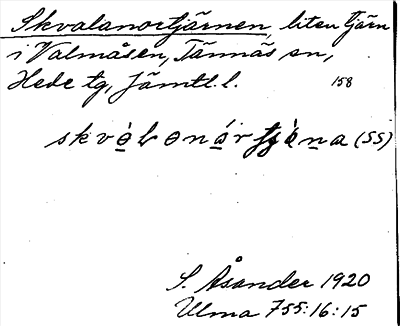 Skvalanortjärnen, liten tjärn
i Valmåsen, Tännäs sn,
Hede tg, Jämtl. l. 158
(SS)
S. Åsander 1920
Ulma 755:16:15